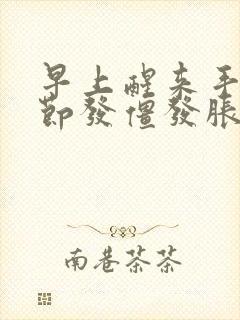 早上醒来手
节發僵發脹
南巷茶茶